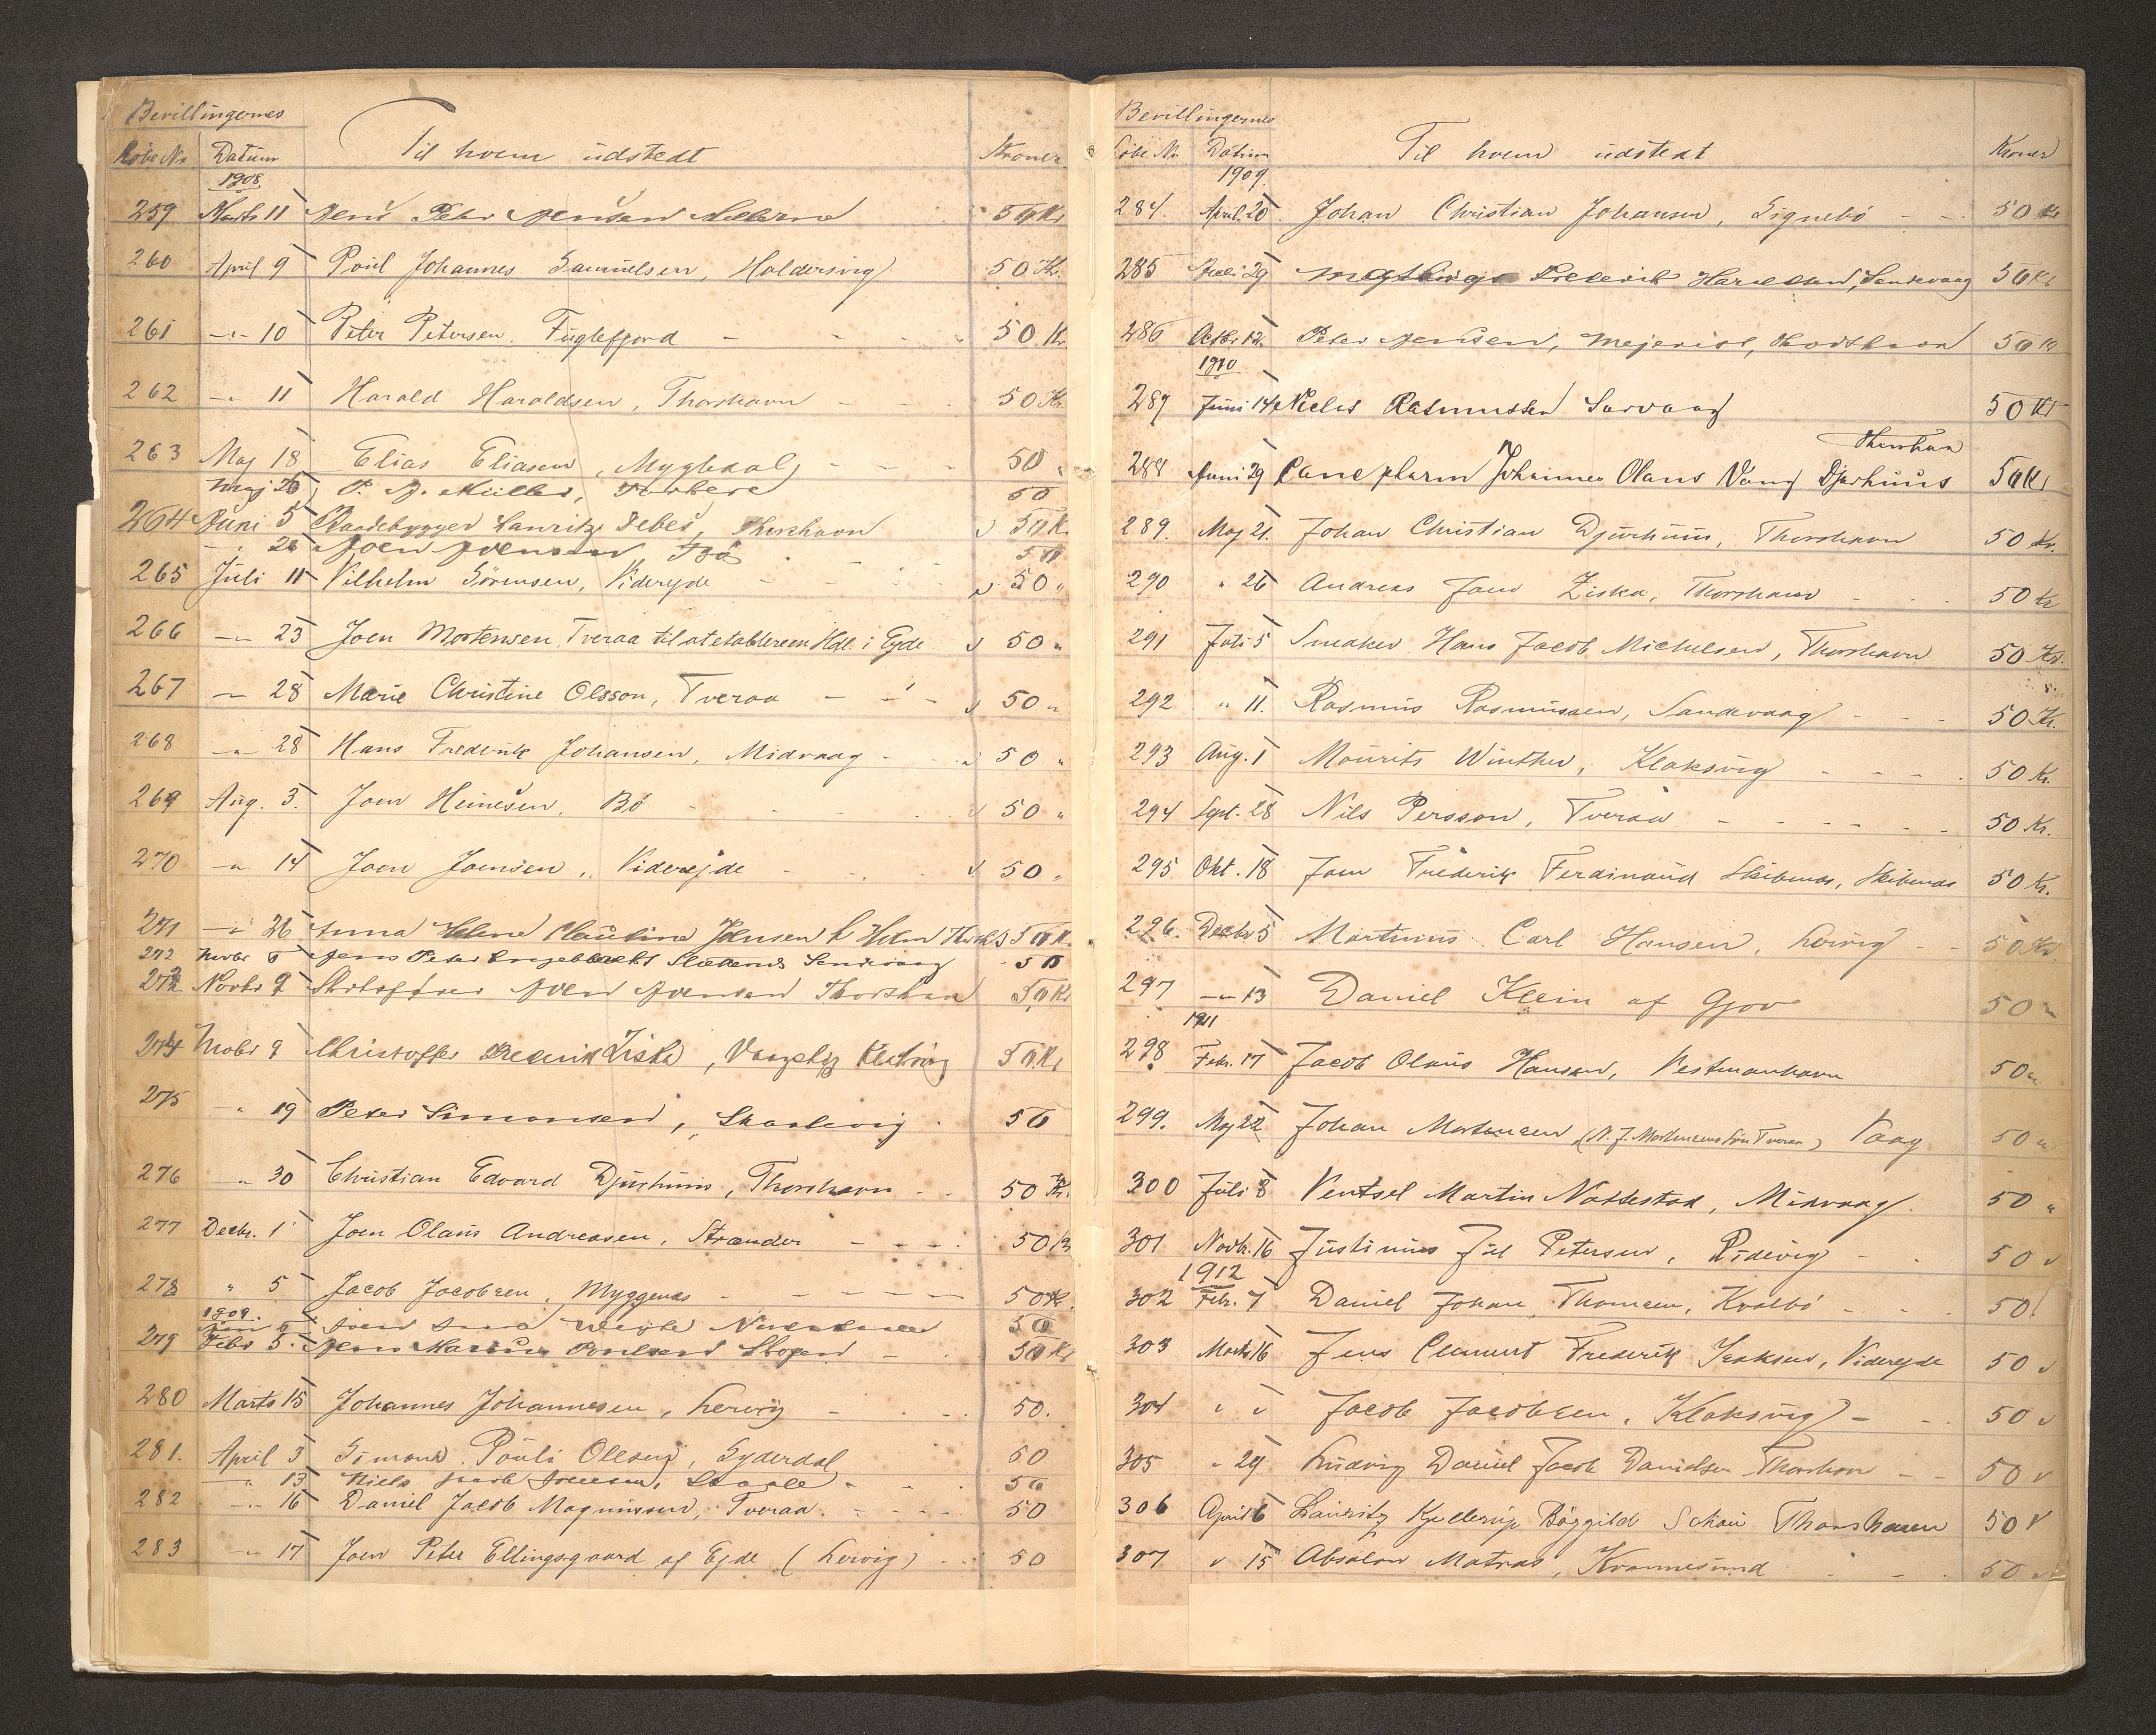 Bevillingernes
Löbe No Datum Til hvem udstedt Kroner
1908.
259 Marts 11 Jens Peter Jensen 50 Kr
260 April 9 Poul Johannes Samuelsen, Haldersvig 50 Kr.
261 -"- 10 Peter Petersen. Fuglefjord - - - " 50 Kr.
262 -"- 11 Harald Haraldsen, Thorshavn - - - 50 Kr.
263 Maj 18 Elias Eliasen, Mygledal, - - - 50 "
Maj 26 P. J. Müller, 50
264 Juni 5 Baadebygger Lauritz Debes, Thorshavn 50 K.
-"- 26 Joen Joensen, Bö 50
265 Juli 11 Vilhelm Sörensen, Viderejde - - - 50 "
266 -"- 23 Joen Mortensen Tveraa til at etablere en Hdl. i Ejde 50 "
267 -"- 28 Marie Christine Olsson, Tveraa - - - 50 "
268 -"- 28 Hans Frederik Johansen, Midvaag - - - 50 "
269 Aug. 3. Joen Heinesen, Bö - - - 50 "
270 -"- 14 Joen Joensen, Viderejde - - - 50 "
271 -"- 26 Anna Helene Claudine Jensen 50 K.
272 Novbr 5 Jens Peter Sandevaag 50
273 Novbr 9 Joen Joensen Thorshavn 50 Kr
274 Novbr 9 Christoffer Frederik Ziska, Klaksvig 50 Kr
275 " 19 Peter Simonsen, Skaalevig . 50
276 " 30 Christian Edvard Djurhuus, Thorshavn - - 50 Kr.
277 Decbr. 1 Joen Olaus Andreasen, Strænder - - - 50 Kr
278 " 5 Jacob Jacobsen, Myggenæs - - - - - 50 Kr.
1909.
50
279 Febr 5. Jens Marius Poulsen Skopen - . 50 Kr
280 Marts 15 Johannes Johannesen, Lervig - . - 50.
281. April 3 Simond Pouli Olesen, Syderdal 50
-"- 13 Niels Jacob Joensen, Skaale - - - 50
282 -"- 16 Daniel Jacob Magnussen, Tveraa. - - - - 50
283 -"- 17 Joen Peter Ellingsgaard af Ejde (Lervig) - - 50
Bevillingernes
Löbe No. Datum Til hvem udstedt Kroner
1909.
284. April 20. Johan Christian Johansen, Signebö - - 50 Kr
285 Juli 29 Frederik Haraldsen, Sandevaag 50 Kr
286 Octbr 12. Peter Jensen, Mejerist, Thorshavn 50 Kr
1910
287 Juni 14 Niels Rasmussen Sørvaag 50 Kr
Thorshavn
288 Juni 29 Cand pharm Johannes Olaus Vang Djurhuus 50 Kr
289. Maj 21. Johan Christian Djurhuus, Thorshavn 50 Kr.
290 " 26 Andreas Joen Ziska, Thorshavn - - - 50 Kr
291 Juli 5 Snedker Hans Jacob Michelsen, Thorshavn 50 Kr.
292 " 11. Rasmus Rasmussen, Sandevaag - - - 50 Kr.
293 Aug. 1 Mourits Winther, Klaksvig - - - - 50 Kr.
294 Sept. 28 Nils Persson, Tveraa - - - - - - 50 Kr.
295 Okt. 18 Joen Frederik Ferdinand Skibenæs, Skibenæs 50 Kr.
296. Decbr 5 Martinus Carl Hansen, Lervig - - 50 Kr
297 -"- 13 Daniel Klein af Gjov 50 "
1911
298 Febr. 17 Jacob Olaus Hansen, Vestmanhavn 50 "
299. Maj 22 Johan Mortensen (N. J. Mortensens Sön Tveraa) Vaag 50 "
300 Juli 8 Ventsel Martin Nattestad, Midvaag 50 "
301 Novbr. 16 Justinus Juel Petersen, Videvig - - 50 "
1912
302 Febr. 7 Daniel Johan Thomsen, Kvalbö - - - 50 "
303 Marts 16 Jens Clement Frederik Isaksen, Viderejde 50 "
304 " " Jacob Jacobsen, Klaksvig - - - 50 "
305 " 29 Ludvig Daniel Jacob Danielsen Thorshavn - - 50 "
306 April 6 Lauritz Kjellerup Böggild Schou Thorshavn 50 "
307. " 15 Absalon Matras, Kvannesund - - - 50 "